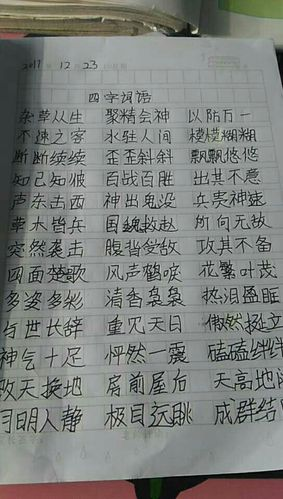 2017年12月23日
四字词语
杂草从生 聚精会神 以防万一
不速之客 水驻人间 模模糊糊
断断续续 歪歪斜斜 飘飘悠悠
知己知彼 百战百胜 出其不意
声东击西 神出鬼没 兵贵神速
草木皆兵 围魏救赵 所向无敌
突然袭击 腹背受敌 攻其不备
四面楚歌 风声鹤唳 花繁叶茂
多姿多彩 清香袅袅 热泪盈眶
与世长辞 重见天日 傲然挺立
神气十足 怦然一震 磕磕绊绊
天换地 房前屋后 天高地
明人静 极目远眺 成群结